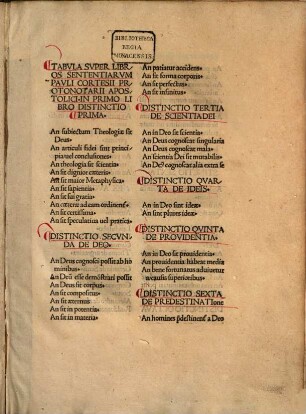 BIBLIOTHECA
REGIA
MONACENSIS.
TABVLA SVPER LIBR
OS SENTENTIARVM
PAVLI CORTESII PR
OTONOTARII APOS
TOLICI·IN PRIMO LI
BRO DISTINCTIO
PRIMA·
An subiectum Theologiæ sit
Deus·
An articuli fidei sint princi
pia uel conclusiones·
An theologia sit scientia·
An sit dignior cæteris·
An sit maior Metaphysica·
An sit sapientia·
An sit sui gratia·
An cæteræ ad eam ordinent·
An sit certissima·
An sit speculatiua uel practica·
DISTINCTIO SECVN
DA DE DEO·
An Deus cognosci possit ab ho
minibus·
An Deū esse demōstrari possit
An Deus sit corpus·
An sit compositus·
An sit æternus·
An sit in potentia·
An sit in materia·
An patiatur accidens·
An sit forma corporis·
An sit perfectus·
An sit infinitus·
DISTINCTIO TERTIA
DE SCIENTIA DEI
An in Deo sit scientia·
An Deus cognoscat singularia
An Deus cognoscat mala·
An scientia Dei sit mutabilis·
An Deꝰ cognoscat alia extra se
DISTINCTIO QVAR
TA DE IDEIS·
An in Deo sint ideæ·
An sint plures ideæ·
DISTINCTIO QVINTA
DE PROVIDENTIA·
An in Deo sit prouidentia·
An prouidentia habeat media
An bene fortunatus adiuuetur
a causis superioribus·
DISTINCTIO SEXTA
DE PREDESTINATIone
An homines p̄destinent̃ a Deo